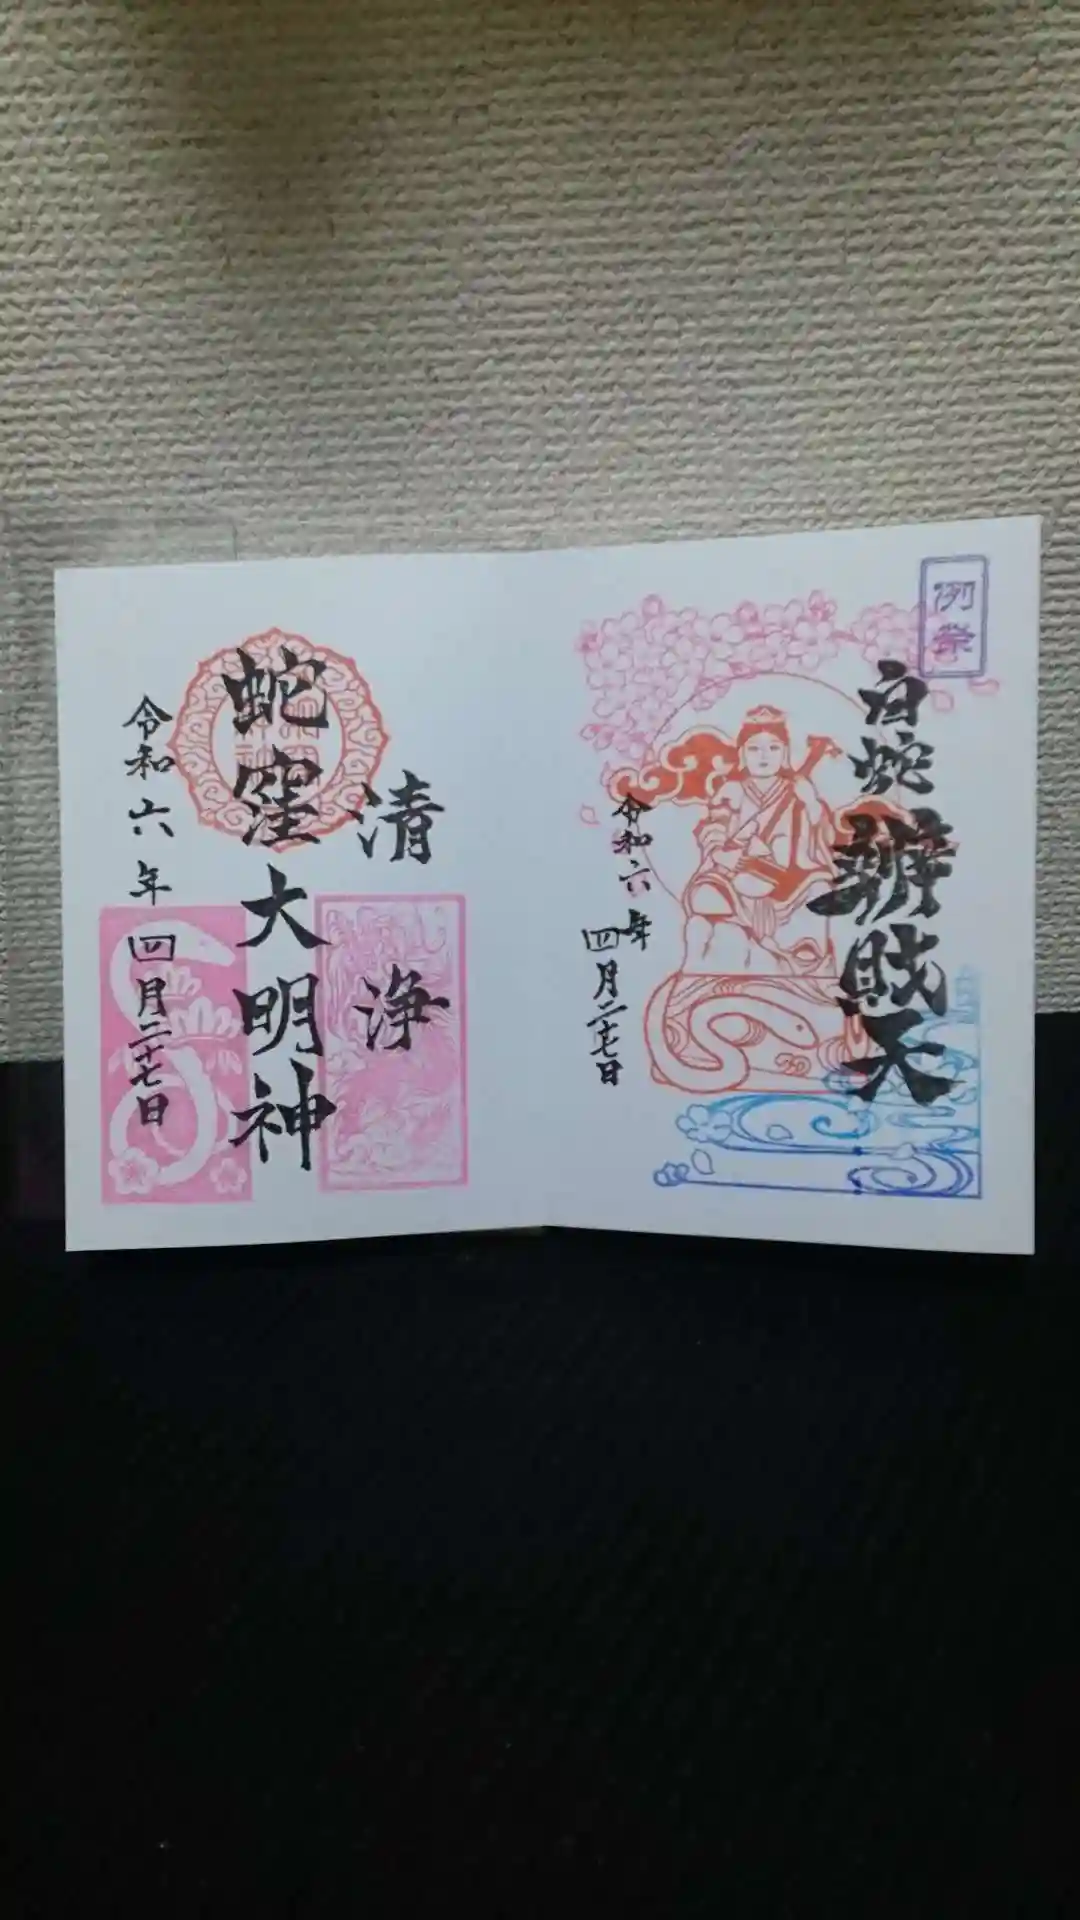 例祭
白蛇辨財天
令和六年
四月二十七日
清浄
蛇窪大明神
令和六年四月二十七日